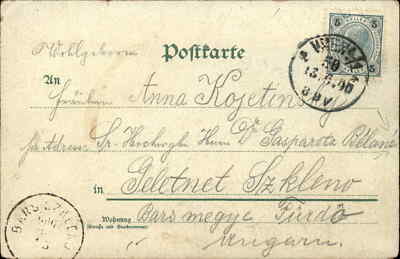 Wohlgeboren
Postkarte
An
Fräulein Anna Kojetinsky
Sr. Hochwgb. Herrn Dr. Gasparota Béláné
in Geletnek Szkleno
Wohnung
(Straße und Hausnummer)
Bars megye Fürdő
Ungarn.
5 5
BARS SZKLENO